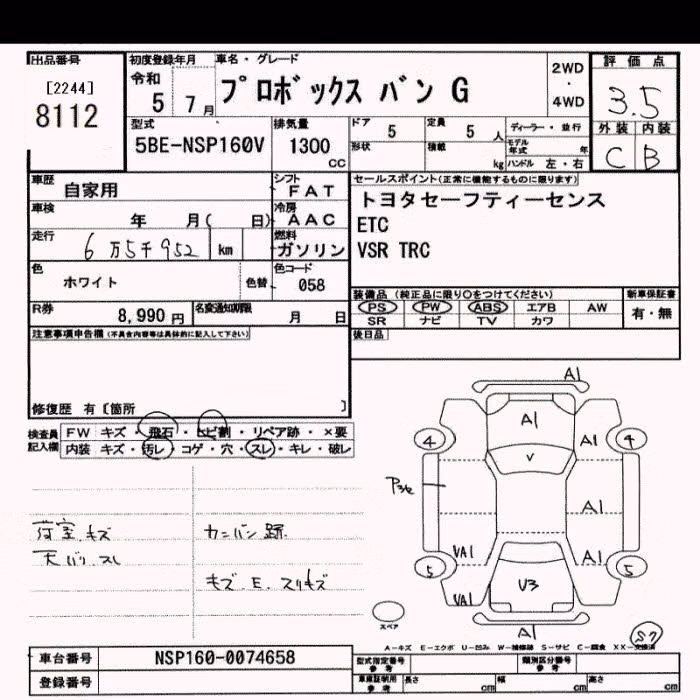 出品番号
[2244]
8112
初度登録年月
令和
5 7月
車名・グレード
プロボックス バン G
2WD
・
4WD
評価点
3.5
外装 内装
C B
型式
5BE-NSP160V
排気量
1300
CC
ドア 5
定員 5 人
形状
積載 kg
ディーラー・並行
モデル年式 年
ハンドル 左・右
車歴 自家用
シフト FAT
車検 年 月( 日)
冷房 AAC
走行 6万5千952 km
燃料 ガソリン
色 ホワイト 色替
色コード 058
R券 8,990円
名変通知期限 月 日
セールスポイント(正常に機能するものに限ります)
トヨタセーフティーセンス
ETC
VSR TRC
装備品 (純正品に限り○をつけてください)
新車保証書
PS PW ABS エアB AW
有・無
SR ナビ TV カワ
後日品
注意事項申告欄(不具合内容等は具体的に記入して下さい)
修復歴 有〔箇所 〕
検査員記入欄
FW キズ・飛石・ヒビ割・リペア跡・×要
内装 キズ・汚レ・コゲ・穴・スレ・キレ・破レ
荷室キズ
天バリ スレ
カンバン跡
キズ.E.スリキズ
A1
A1
4
A1
4
V
P3/2
A1
VA1
A1
5
U3
5
VA1
A1
S7
スペア
A－キズ E－エクボ U－凹み W－補修跡 S－サビ C－腐食 XX－交換済
車台番号 NSP160-0074658
登録番号
型式指定番号 参考
類別区分番号 参考
車庫証明用 参考
長さ cm
幅 cm
高さ cm